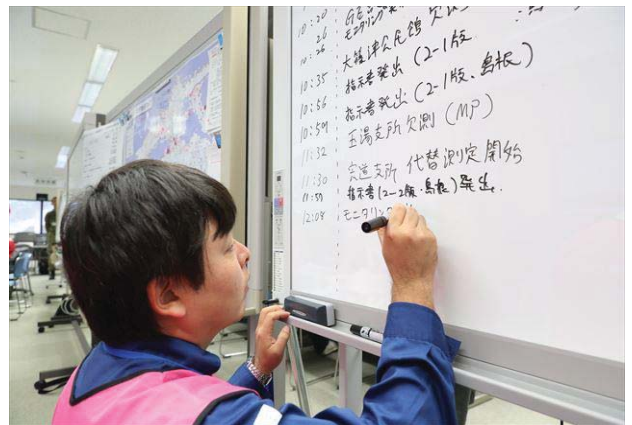 10:20
10:26 モニタリング
10:26 大篠津公民館 欠測
10:35 指示書発出 (2-1版
10:56 指示書発出 (2-1版、島根)
10:59 玉湯支所欠測 (MP)
11:32 宍道支所 代替測定開始
11:30 指示書(2-2版・島根)発出.
11:59
12:08 モニタリング